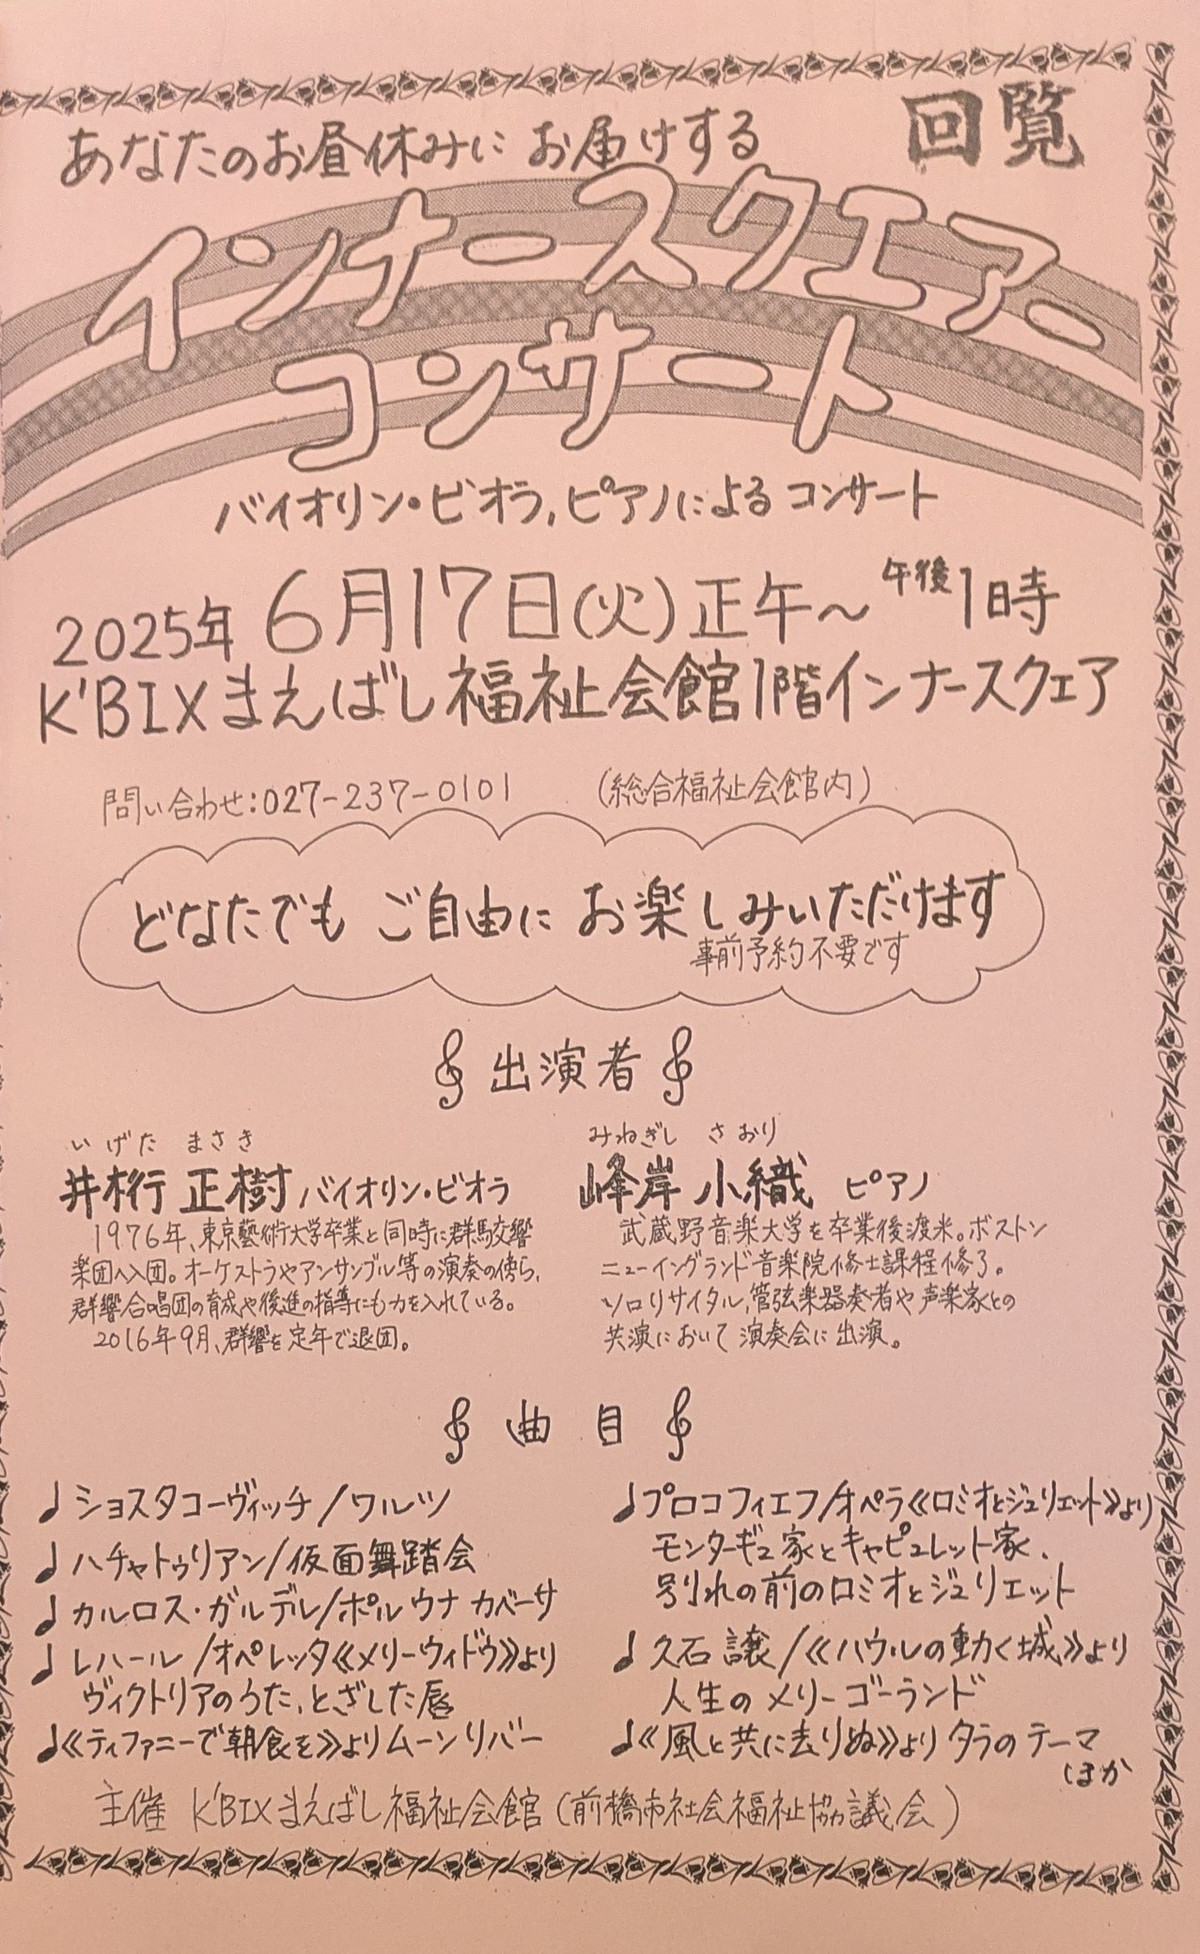 回覧
あなたのお昼休みに お届けする
インナースクエアー
コンサート
バイオリン・ビオラ,ピアノによるコンサート
2025年 6月17日(火)正午〜午後1時
K'BIXまえばし福祉会館1階インナースクェア
問い合わせ:027-237-0101 (総合福祉会館内)
どなたでも ご自由に お楽しみいただけます
事前予約不要です
出演者
いげた まさき
井桁 正樹 バイオリン・ビオラ
1976年、東京藝術大学卒業と同時に群馬交響
楽団へ入団。オーケストラやアンサンブル等の演奏の傍ら、
群響合唱団の育成や後進の指導にも力を入れている。
2016年9月、群響を定年で退団。
みねぎし さおり
峰岸 小織 ピアノ
武蔵野音楽大学を卒業後渡米。ボストン
ニューイングランド音楽院修士課程修了。
ソロリサイタル,管弦楽器奏者や声楽家との
共演において演奏会に出演。
曲目
♩ショスタコーヴィッチ/ワルツ
♩ハチャトゥリアン/仮面舞踏会
♩カルロス・ガルデル/ポル ウナ カベーサ
♩レハール/オペレッタ《メリーウィドウ》より
ヴィクトリアのうた,とざした唇
♩《ティファニーで朝食を》よりムーンリバー
♩プロコフィエフ/オペラ《ロミオとジュリエット》より
モンターギュ家とキャピュレット家、
別れの前のロミオとジュリエット
♩久石 譲/《ハウルの動く城》より
人生のメリーゴーランド
♩《風と共に去りぬ》よりタラのテーマ
ほか
主催 K'BIXまえばし福祉会館(前橋市社会福祉協議会)